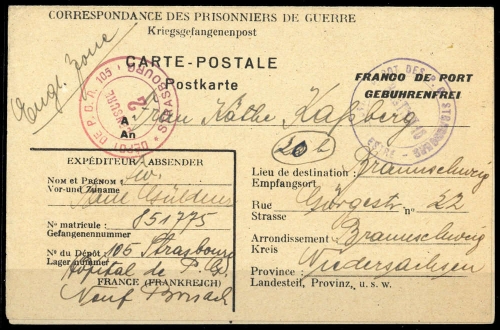 CORRESPONDANCE DES PRISONNIERS DE GUERRE
Kriegsgefangenenpost
Engl. Zone
CARTE-POSTALE
Postkarte
FRANCO DE PORT
GEBÜHRENFREI
DÉPOT DE P. G. N. 105
CENSURE
STRASBOURG
Frau Käthe Kaßberg
20 b
EXPÉDITEUR/ABSENDER
NOM et PRÉNOM :
Vor-und Zuname
N° matricule : 851775
Gefangenennummer
N° du Dépôt : 106 Strasbourg
Lager nummer
Hôpital de P. G.
FRANCE (FRANKREICH)
Neuf Brisach
Lieu de destination : Braunschweig
Empfangsort
Rue Görgestr n° 22
Strasse
Arrondissement Braunschweig
Kreis
Province : Niedersachsen
Landesteif, Provinz, u. s. w.